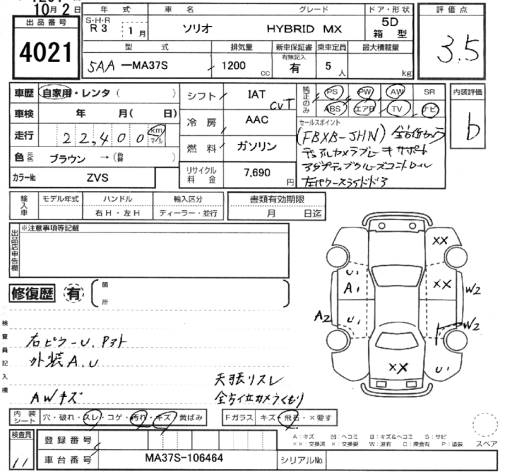 10月2
出品番号
4021
S・H・R
R3 1月
年式 車名 グレード ドア・形状
ソリオ HYBRID MX 5D 箱型
評価点
3.5
型式 排気量 新車保証書 有無記入 乗車定員 最大積載量
5AA ーMA37S 1200 cc 有 5 人 kg
車歴 自家用・レンタ ( )
車検 年 月( 日)
走行 22,400 km マイル
色 ブラウン → (替 )
カラーNo. ZVS
シフト IAT CVT
冷房 AAC
燃料 ガソリン
リサイクル料金 7,690 円
純正のみ PS PW AW SR
ABS エアB TV ナビ
内装評価
b
セールスポイント
(FBXB-JHN) 全方位カメラ
デュアルカメラブレーキサポート
アダプティブクルーズコントロール
左右パワースライドドア
輸入車 モデル年式 ハンドル 輸入区分
右H・左H ディーラー・並行
書類有効期限
月 日迄
出品店申告欄
※注意事項等記載
修復歴 有 箇所
検査員記入欄
右ピラーU.Pアト
外装A.U
AWキズ
天張リスレ
全方位カメラくもり
XX
U1
A1
XX
W2
A2
U1
W2
XX
U1
内装シート 穴・破れ・スレ・コゲ・汚れ・キズ・黄ばみ
Fガラス キズ・飛石・×要す
A:キズ
スペア
検査員
11
登録番号
車台番号 MA37S-106464 シリアルNo.